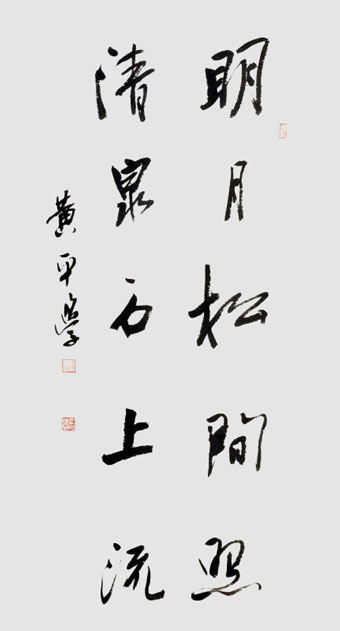 明月松間照
清泉石上流
黃平